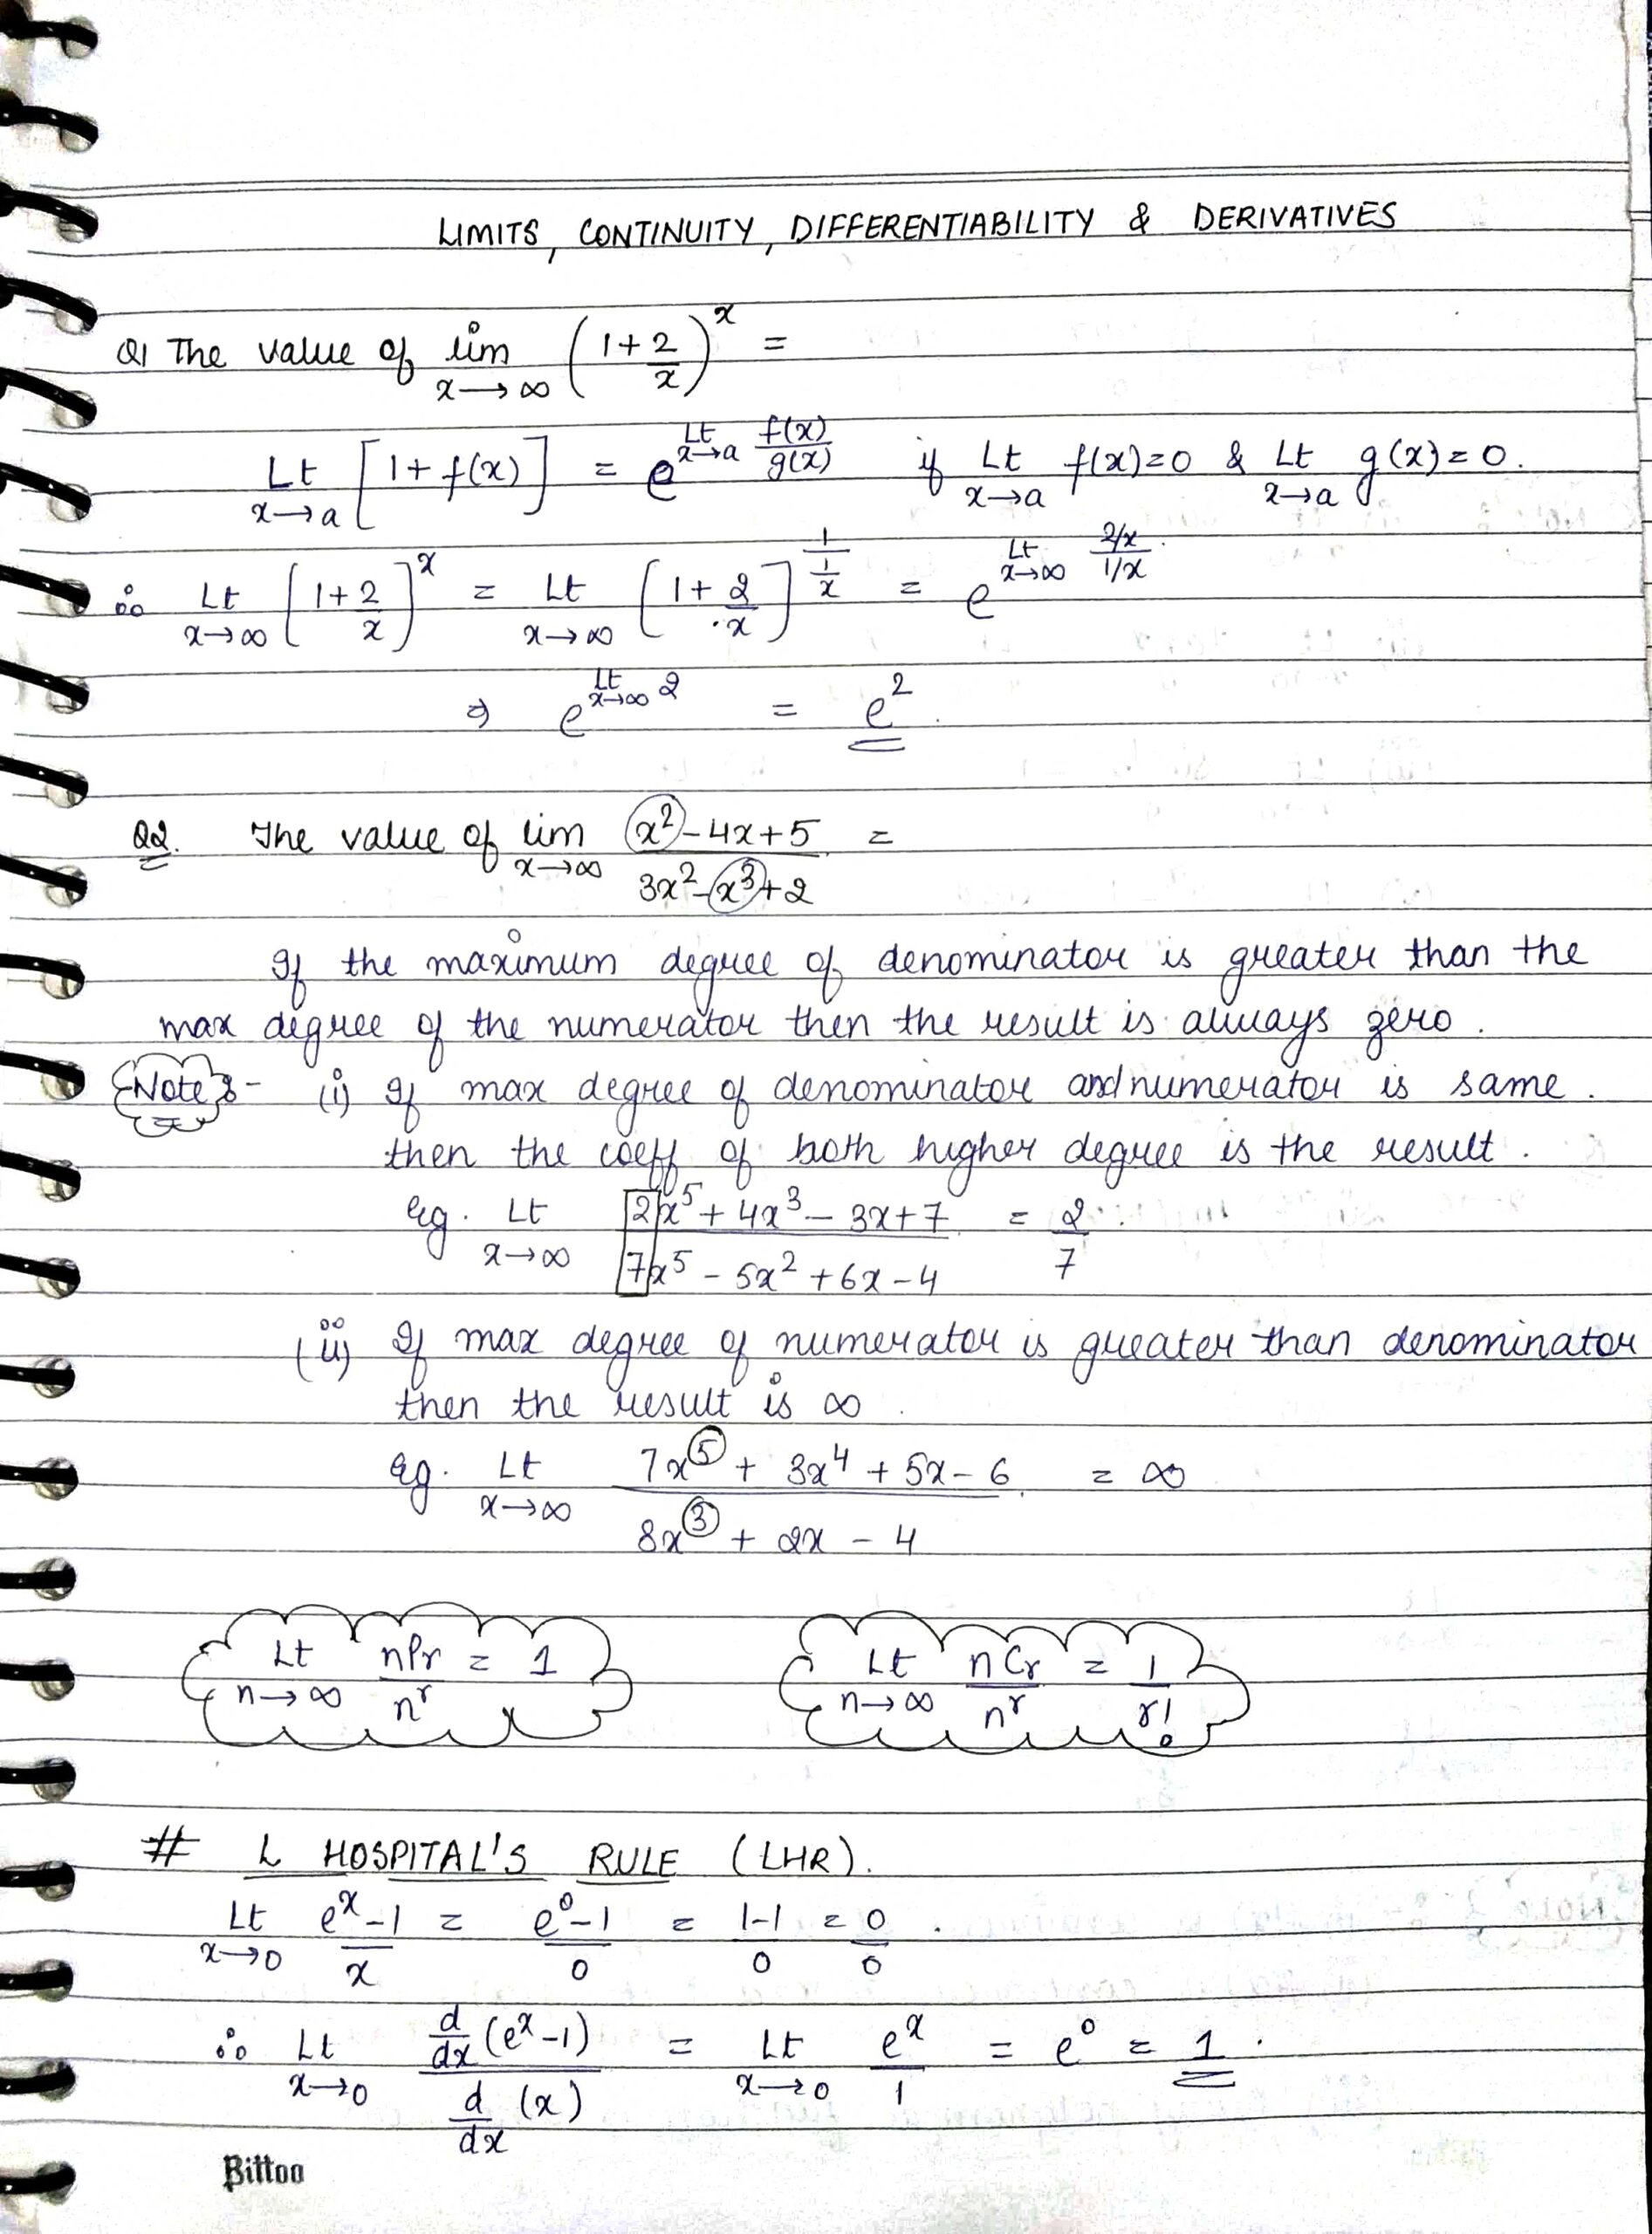 LIMITS, CONTINUITY, DIFFERENTIABILITY & DERIVATIVES
Q1 The value of lim x→∞ (1+2/x)^x =
Lt x→a [1+f(x)] = e^(Lt x→a f(x)/g(x)) if Lt x→a f(x)=0 & Lt x→a g(x)=0.
∴ Lt x→∞ [1+2/x]^x = Lt x→∞ [1+2/x]^(1/(1/x)) = e^(Lt x→∞ (2/x)/(1/x))
⇒ e^(Lt x→∞ 2) = e^2.
Q2. The value of lim x→∞ (x^2-4x+5)/(3x^2-x^3+2) =
If the maximum degree of denominator is greater than the
max degree of the numerator then the result is always zero.
Note:- (i) If max degree of denominator and numerator is same.
then the coeff of both higher degree is the result.
eg. Lt x→∞ (2x^5+4x^3-3x+7)/(7x^5-5x^2+6x-4) = 2/7
(ii) If max degree of numerator is greater than denominator
then the result is ∞.
eg. Lt x→∞ (7x^5+3x^4+5x-6)/(8x^3+2x-4) = ∞
Lt n→∞ nPr/n^r = 1 Lt n→∞ nCr/n^r = 1/r!
# L HOSPITAL'S RULE (LHR).
Lt x→0 (e^x-1)/x = (e^0-1)/0 = (1-1)/0 = 0/0.
∴ Lt x→0 (d/dx (e^x-1))/(d/dx (x)) = Lt x→0 e^x/1 = e^0 = 1.
Bittoo